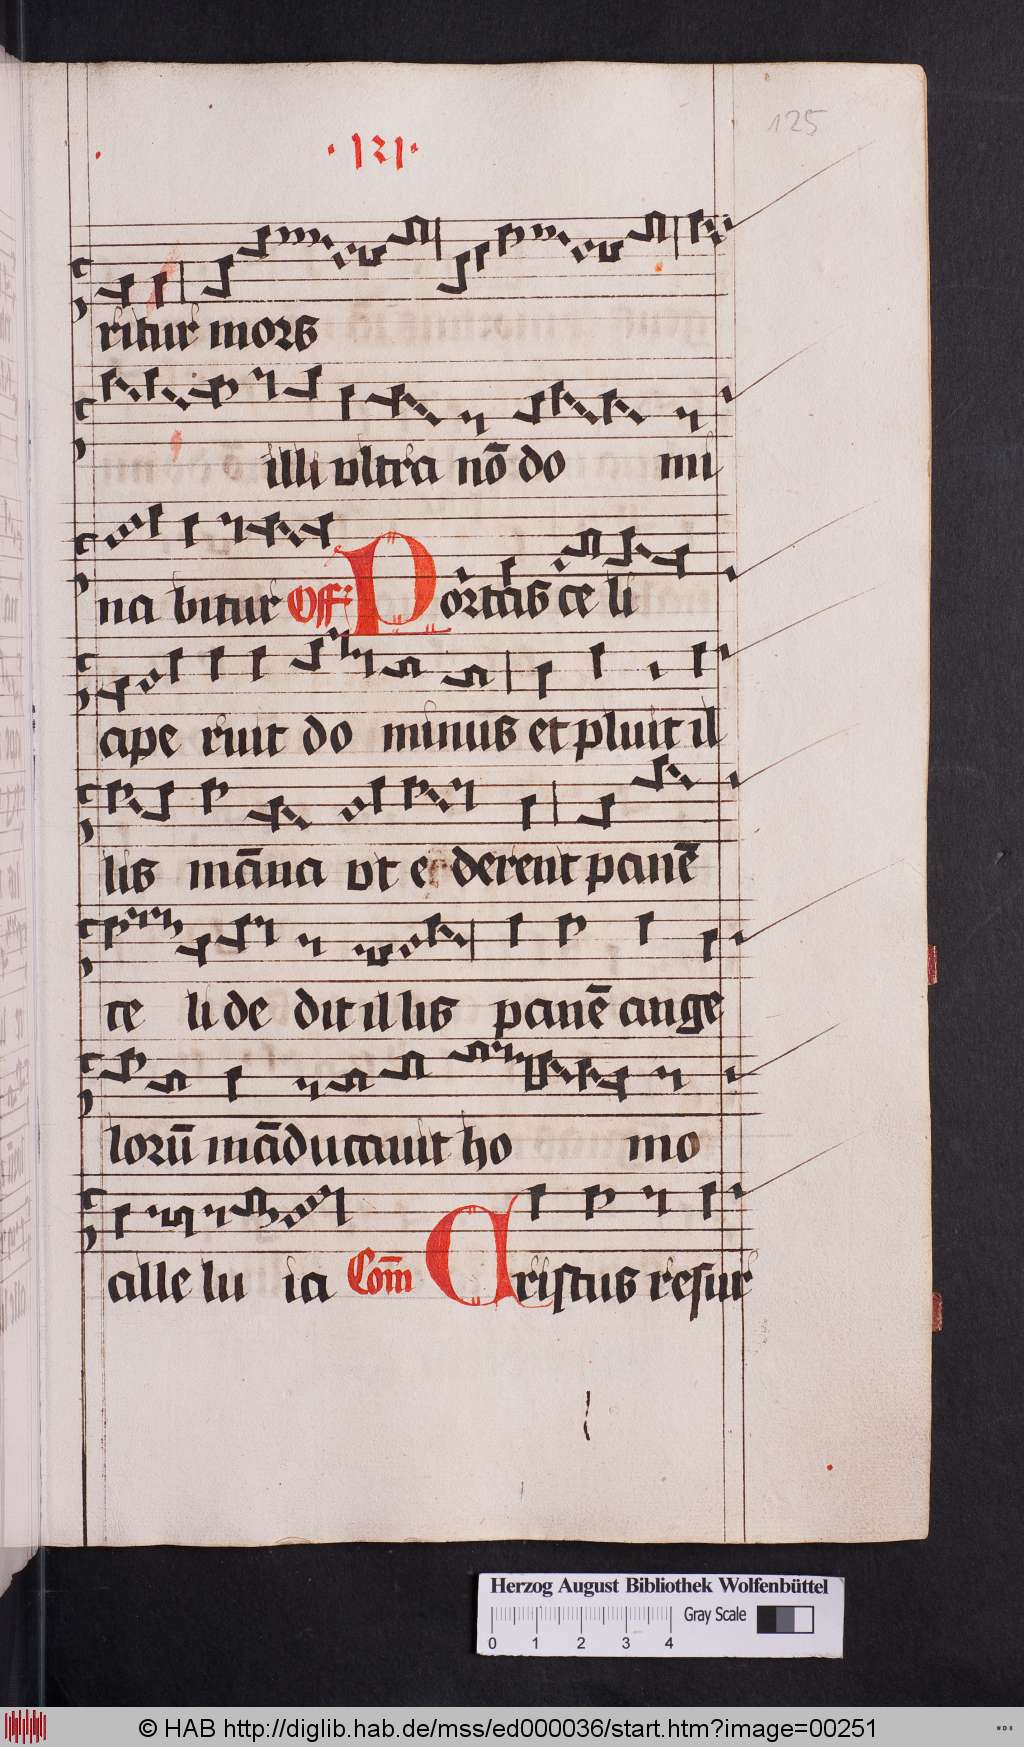 ·121·
125
ritur mors
illi vltra nō do mi
na bitur Off: Portas ce li
ape ruit do minus et pluit il
lis māna vt e derent panē
ce li de dit il lis panē ange
lorū māducauit ho mo
alle lu ia Com̄ Cristus resur
Herzog August Bibliothek Wolfenbüttel
Gray Scale
0 1 2 3 4
© HAB http://diglib.hab.de/mss/ed000036/start.htm?image=00251